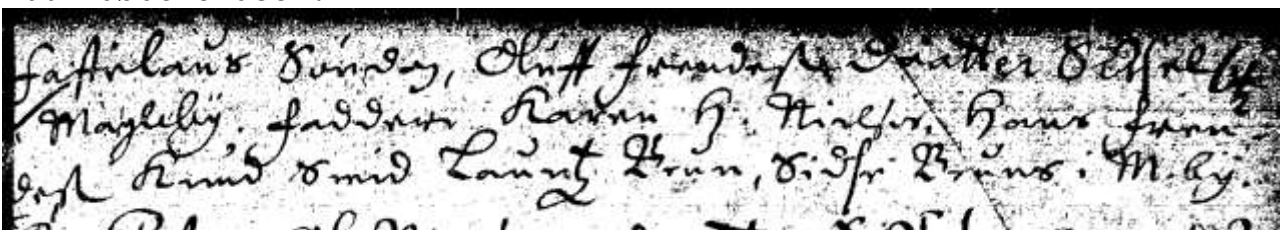 Fastelauns Søndag, Oluff Frendesens Daatter Sidsel
i Magleby. Faddere Karen H. Nielsis, Hans Fren-
des, Knud Smid Lauritz Brun, Sidse Bruns i M.by.